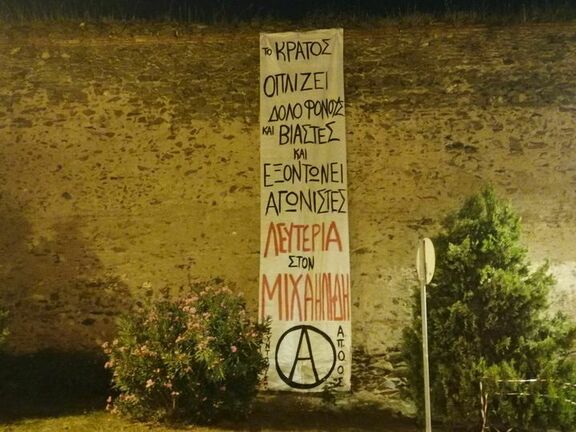 το ΚΡΑΤΟΣ
ΟΠΛΙΖΕΙ
ΔΟΛΟΦΟΝΟΥΣ
και ΒΙΑΣΤΕΣ
και
ΕΞΟΝΤΩΝΕΙ
ΑΓΩΝΙΣΤΕΣ
ΛΕΥΤΕΡΙΑ
ΣΤΟΝ
ΜΙΧΑΗΛΙΔΗ
Α